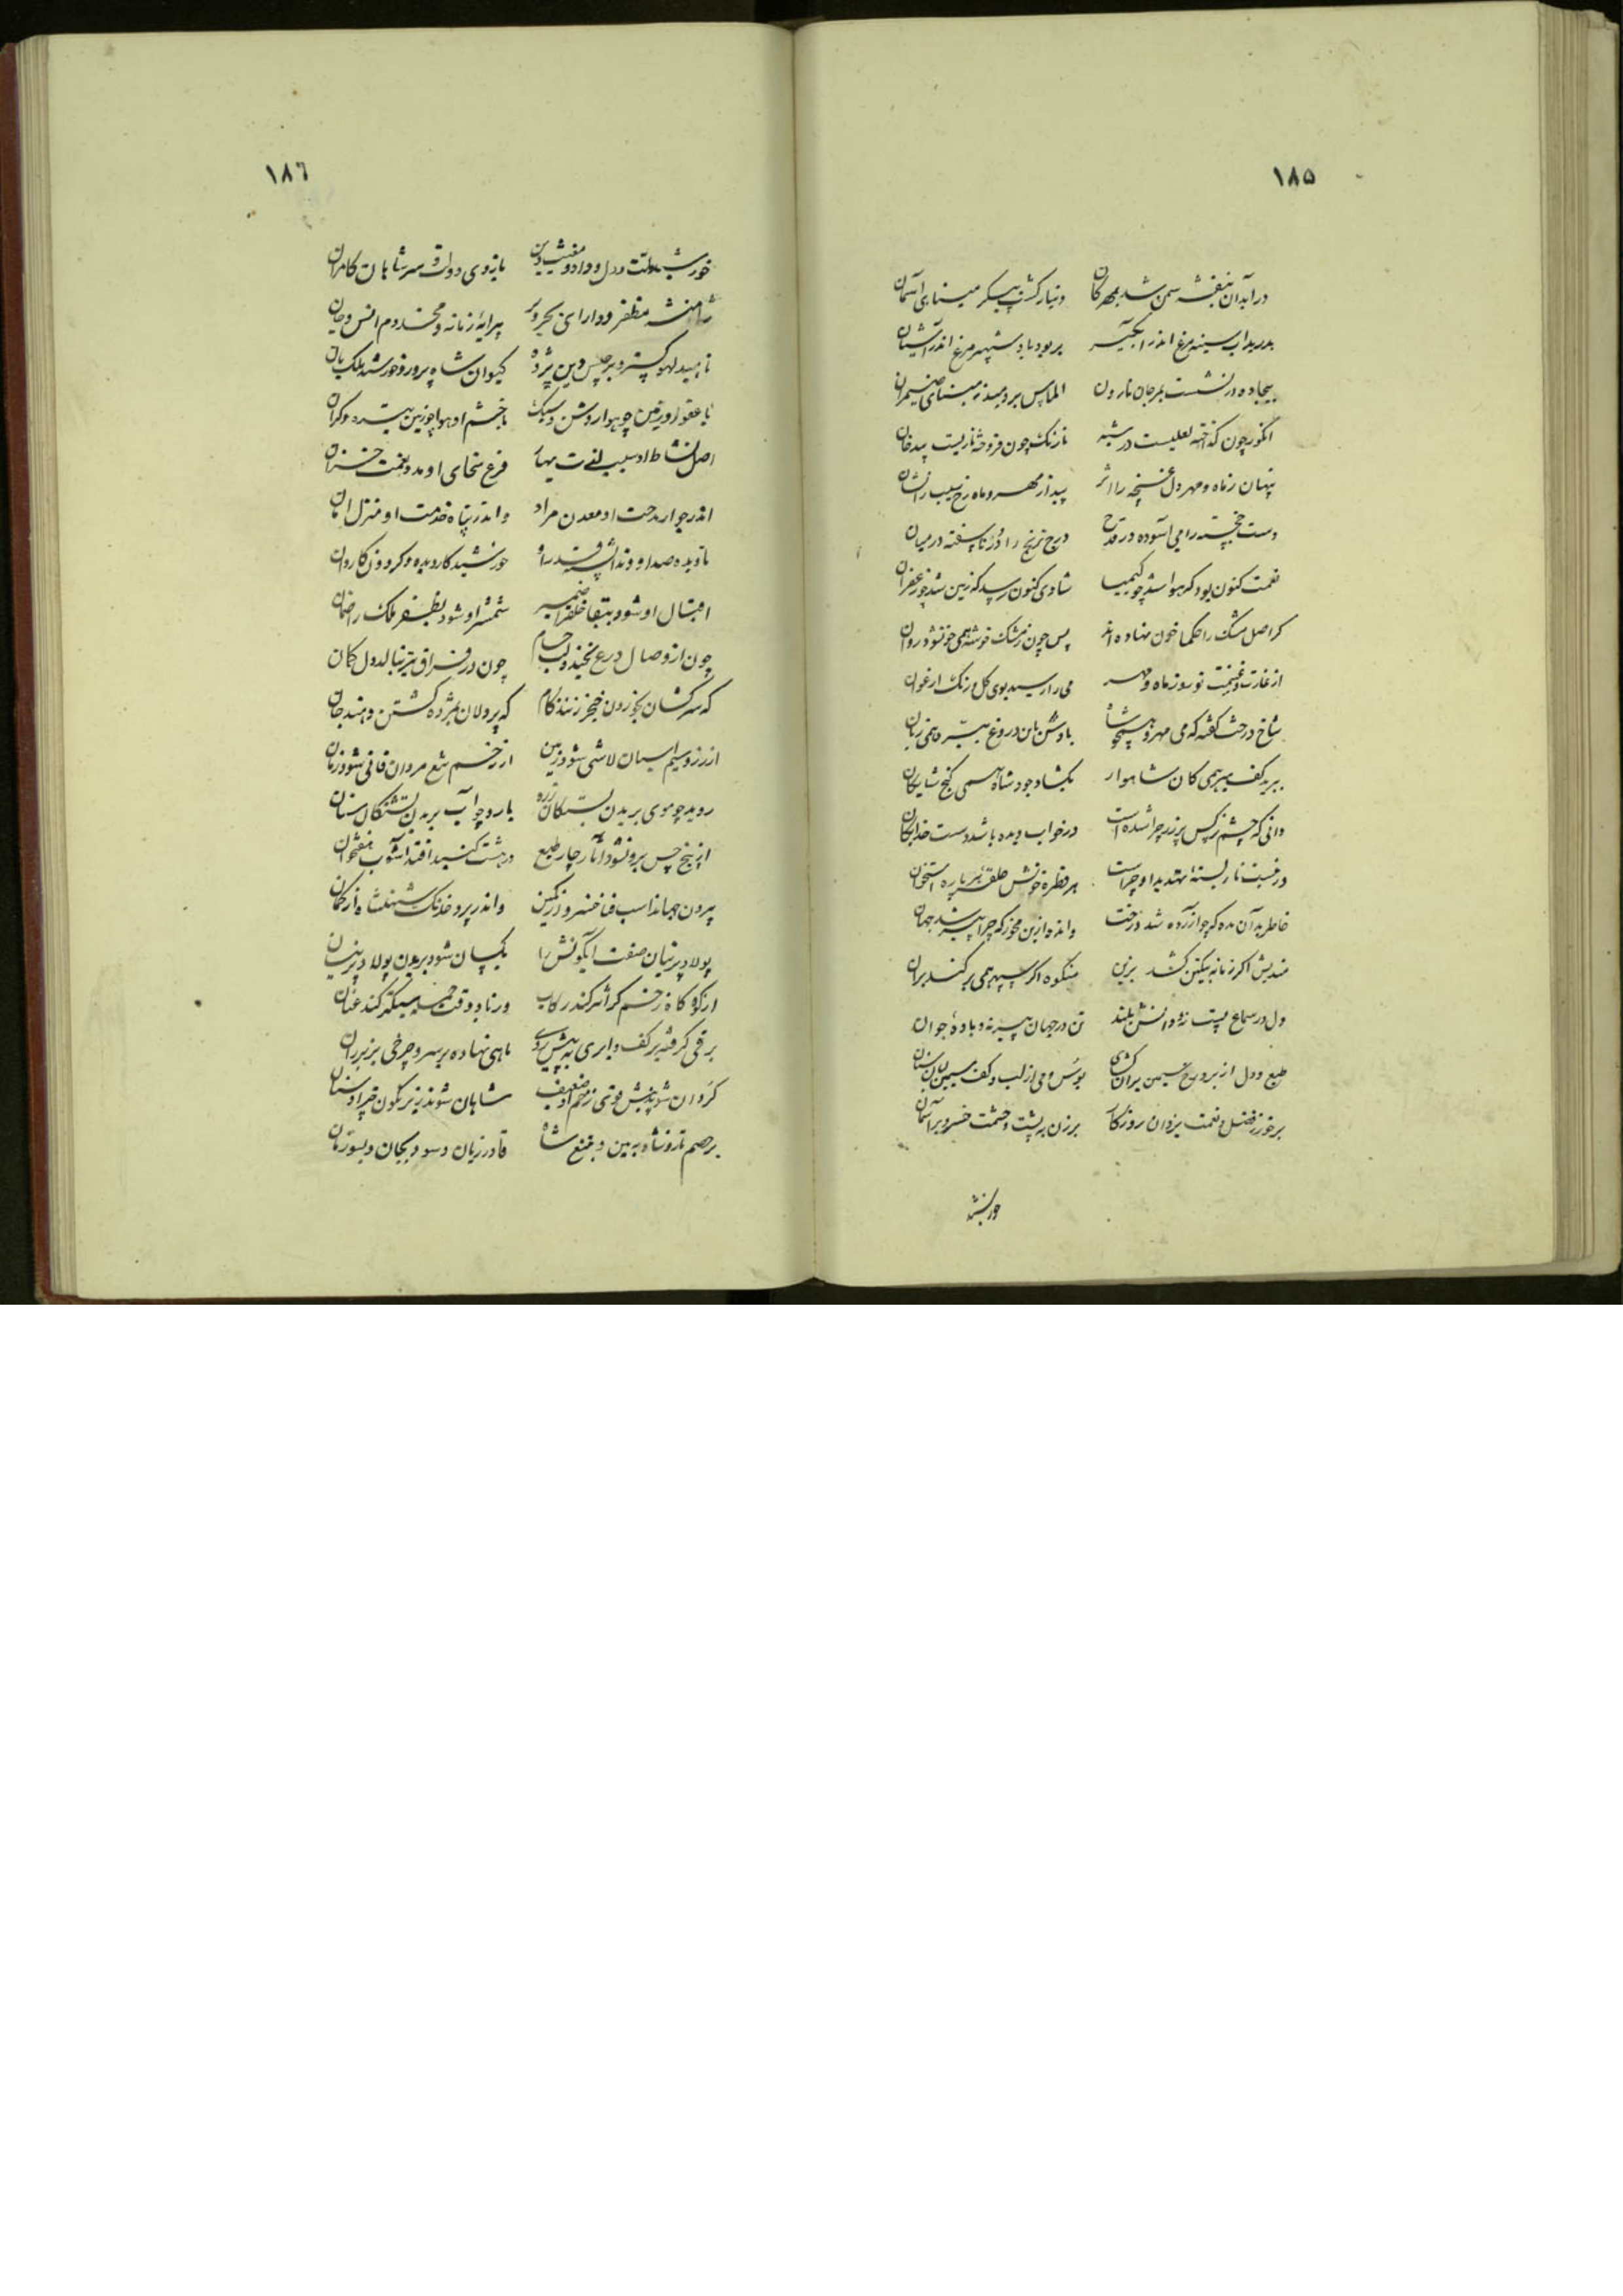 ۱۸۵
در آبدان بنفشه سمن شد بمهرکان دینار کشت پیکر مینای آسمان
بدرید آب سینه مرغ اندر آبکیر بربود باد شهپر مرغ اندر آشیان
بیجاده در نشست بمرجان نارون الماس بردمید ز مینای ضیمران
انکور چون کداخته لعلیست در شبه نارنک چون فروخته ناریست بیدخان
پنهان ز ماه و مهر دل غنچه را اثر پیدا ز مهر و ماه رخ سیب را نشان
دست خجسته را می آسوده در قدح درج ترنج را در ناسفته در میان
نعمت کنون بود که هوا شد چو کیمیا شادی کنون رسد که زمین شد چو زعفران
کر اصل مشک را حکما خون نهاده اند پس چون ز مشک خوشه همی خون شود روان
از غارت و غنیمت نوروز ماه و مهر می را رسید بوی کل و رنک ارغوان
شاخ درخت کفته که می مهر
ببرید کف میر همی کان شاهوار بکشاد جود شاه همی کنج شایکان
دانی که چشم نرکس پر زر چرا شده است در خواب دیده باشد دست خدایکان
هر قطره خونش حلقه هر پاره استخوان
خاطر بدان مده که چو آزرده شد درخت و انده ازین مخور که چرا پیر شد جهان
مندیش اکر زمانه بیکین کشد بزین مشکوه اکر سپهر همی بر کند بران
دل در سماع پست نه و دانش بلند تن در جهان پیر نه و باده جوان
طبع و دل از برو رخ سیمین بران کشای بوس و می از لب و کف سیمین بران ستان
برخور ز فضل و نعمت یزدان روزکار برزن به پشت و حشمت خسرو بر آسمان
خورشید
۱۸٦
خورشید ملت و دل و داد و مغیث دین بازوی دولت و سر شاهان کامران
شاهنشه مظفر و دارای بحر و بر پیرایه زمانه و مخدوم انس و جان
ناهید لهو کستر و برجیس دین پژوه کیوان شاه پرور و خورشید ملک بان
با عفو او زمین چو هوا روشن و سبک با خشم او هوا چو زمین تیره و کران
اصل نشاط او سبب لذت بهار فرع سخای او مدد نعمت خزان
اندر جوار مدحت او معدن مراد و اندر پناه خدمت او منزل امان
نادیده صد او و ندانسته قدر او خورشید کاردیده و کردون کاردان
اقبال او شود ببقا خلق را ضمیر شمشیر او شود بظفر ملک را ضمان
چون از وصال درع بخندد لب حسام چون در فراق تیر بنالد دل کمان
که سرکشان بخوردن خنجر زنند کام که پردلان بمژده کشتن دهند جان
از زخم تیغ مردان فانی شود زمان
روید چو موی بر بدن بستکان زره بارد چو آب بر بدن تشنکان سنان
از پنج حس برون شود آثار چار طبع در هشت کنبد افتد آشوب هفتخوان
بیرون جهاند اسب فنا خسرو از کمین و اندر پرد خدنک شهنشه از کمان
پولاد پرنیان صفت آبکونش را یکسان شود بریدن پولاد و پرنیان
از کوه کاه زخم کران تر کند رکاب وز باد وقت حمله سبکتر کند عنان
برقی کرفته بر کف و ابری به پیش روی ماهی نهاده بر سر و چرخی بزیر ران
کردان شوند پیش قوی زخم او ضعیف شاهان شوند زیر نکون چتر او ستان
بر خصم تازو شاه بمین و بمنع شاه قادر زیان و سود بجان و بسوزیان